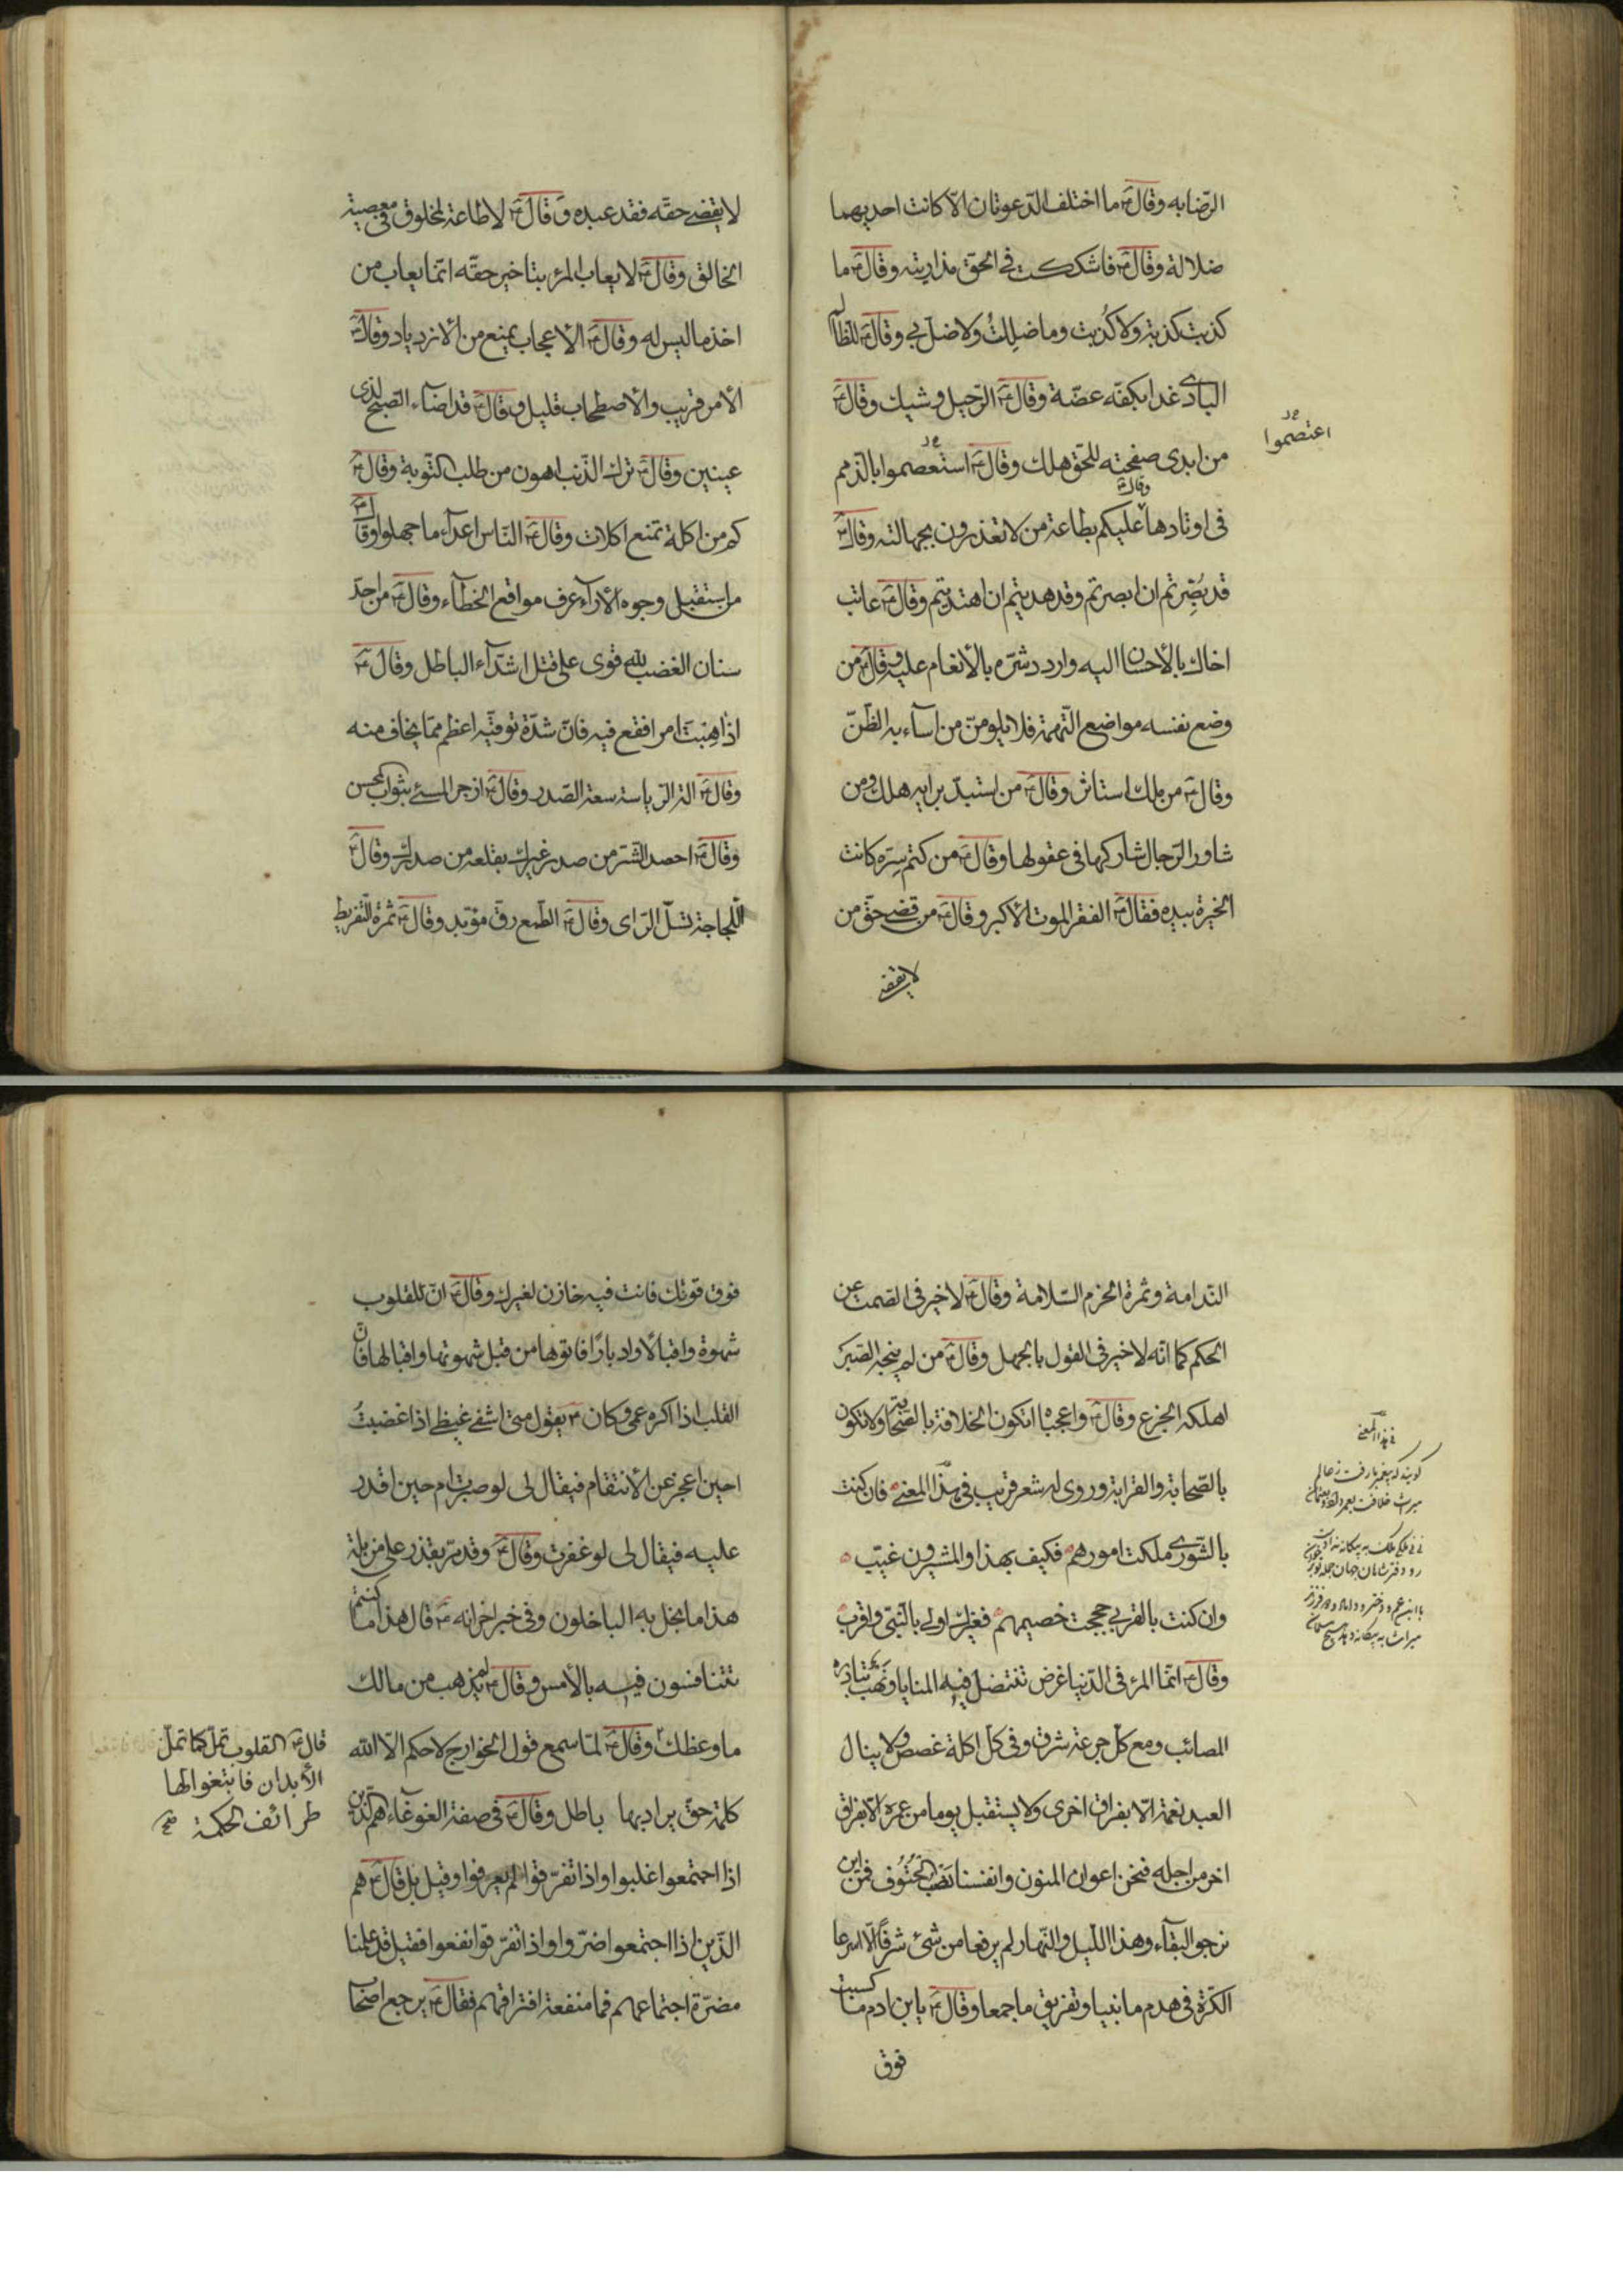 الرّضا به وقالَ عم ما اختلف الدّعوتان الّا كانت احديهما
ضلالة وقالَ عم ما شككت فى الحقّ مذ اريته وقالَ عم ما
كذبت كذبة ولا كُذبت وما ضلِلتُ ولا ضلّ بى وقالَ عم للظالم
البادى غدا بكفّه عضّة وقالَ عم الرّحيل وشيك وقالَ عم
من ابدى صفحته للحق هلك وقالَ عم استعصموا بالذمم
اعتصموا
فى اوتادها وقال عم عليكم بطاعة من لا تعذرون بجهالته وقالَ عم
قد بُصِّرتم ان ابصرتم وقد هديتم ان اهتديتم وقالَ عم عاتب
اخاك بالأحسان اليه واردد شرّه بالأنعام عليه وقالَ عم من
وضع نفسه مواضع التّهمة فلا يلومنّ من اساء به الظّنّ
وقالَ عم من ملك استاثر وقالَ عم من استبدّ برايه هلك ومن
شاور الرّجال شاركها فى عقولها وقالَ عم من كتم سِرّه كانت
الخيرة بيده فقالَ عم الفقر الموت الأكبر وقالَ عم من قضى حقّ من
لا يقضى
لا يقضى حقّه فقد عبده وقالَ عم لا طاعة لمخلوق فى معصية
الخالق وقالَ عم لا يعاب المرء بتاخير حقّه انّما يعاب من
اخذ ما ليس له وقالَ عم الأعجاب يمنع من الازدياد وقالَ عم
الأمر قريب والأصطحاب قليل وقالَ عم قد اضاء الصّبح لذى
عينين وقالَ عم ترك الذّنب اهون من طلب التّوبة وقالَ عم
كم من اكلة تمنع اكلات وقالَ عم النّاس اعداء ما جهلوا وقال عم
من استقبل وجوه الأراء عرف مواقع الخطاء وقالَ عم من احدّ
سنان الغضب للّه قوى على قتل اشدّاء الباطل وقالَ عم
اذا هِبْتَ امرا فقع فيه فانّ شدّة توقّيه اعظم ممّا يخاف منه
وقالَ عم الة الرّياسة سعة الصّدر وقالَ عم ازجر المسىء بثواب المحسن
وقالَ عم احصد الشّر من صدر غيرك بقلعه من صدرك وقالَ عم
اللّجاجة تسلّ الرّاى وقالَ عم الطّمع رقّ مؤبّد وقالَ عم ثمرة التّفريط
النّدامة وثمرة الحزم السّلامة وقالَ عم لا خير فى الصّمت عن
الحكم كما انّه لا خير فى القول بالجهل وقالَ عم من لم ينجه الصّبر
اهلكه الجزع وقالَ عم واعجباه اتكون الخلافة بالصّحابة ولا تكون
بالصّحابة والقرابة وروى له شعر قريب فى هذا المعنى فان كنت
بالشّورى ملكت امورهم فكيف بهذا والمشيرون غيّب
وان كنت بالقربى حججت خصيمهم فغيرك اولى بالنّبىّ واقرب
وقالَ عم انّما المرء فى الدّنيا غرض تنتضل فيه المنايا ونهب تبادره
المصائب ومع كلّ جرعة شرق وفى كلّ اكلة غصص ولا ينال
العبد نعمة الّا بفراق اخرى ولا يستقبل يوما من عمره الّا بفراق
اخر من اجله فنحن اعوان المنون وانفسنا نَصْبُ الحُتُوف فمن اين
نرجو البقاء وهذا اللّيل والنّهار لم يرفعا من شىء شرفاً الّا اسرعا
الكرّة فى هدم ما بنيا وتفريق ما جمعا وقالَ عم يابن ادم ما كسبت
فوق
فى هذا المعنى
ميراث خلافت
فوق قوتك فانت فيه خازن لغيرك وقالَ عم انّ للقلوب
شهوة واقبالاً وادباراً فاتوها من قبل شهوتها واقبالها فانّ
القلب اذا اكره عمى وكان عم يقول متى اشفى غيظى اذا غضبتُ
احين اعجز عن الأنتقام فيقال لى لو صبرت ام حين اقدر
عليه فيقال لى لو غفرت وقالَ عم وقد مرّ بقذر على مزبلة
هذا ما بخل به الباخلون وفى خبر اخر انه عم قال هذا ما كنتم
تتنافسون فيه بالأمس وقالَ عم لم يذهب من مالك
ما وعظك وقالَ عم لمّا سمع قول الخوارج لا حكم الّا للّه
كلمة حقّ يراد بها باطل وقالَ عم فى صفة الغوغاء هم الّذين
اذا اجتمعوا غلبوا واذا تفرّقوا لم يعرفوا وقيل بل قالَ عم هم
الّذين اذا اجتمعوا ضرّوا واذا تفرّقوا نفعوا فقيل قد علمنا
مضرّة اجتماعهم فما منفعة افتراقهم فقالَ عم يرجع اصحاب
قالَ عم القلوب تملّ كما تملّ
الأبدان فابتغوا لها
طرائف الحكمة صح